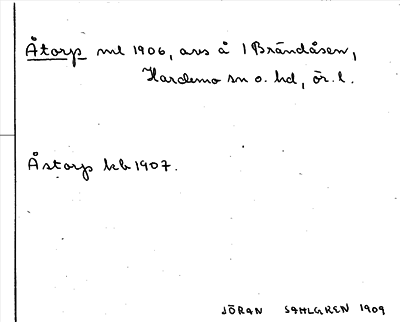 Åtorp ml 1906, avs å 1 Brändåsen,
Hardemo sn o. hd, ör. l.
Åstorp kb 1907.
JÖRAN SAHLGREN 1909